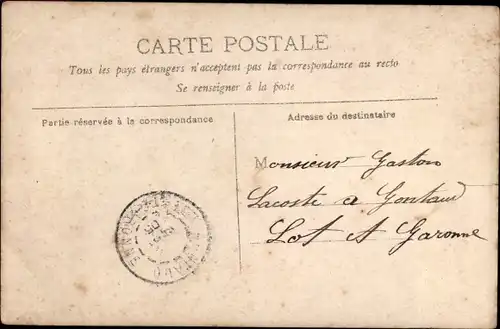 CARTE POSTALE
Tous les pays étrangers n'acceptent pas la correspondance au recto
Se renseigner à la poste
Partie réservée à la correspondance
Adresse du destinataire
Monsieur Gaston
Lacoste a Gontaud
Lot et Garonne